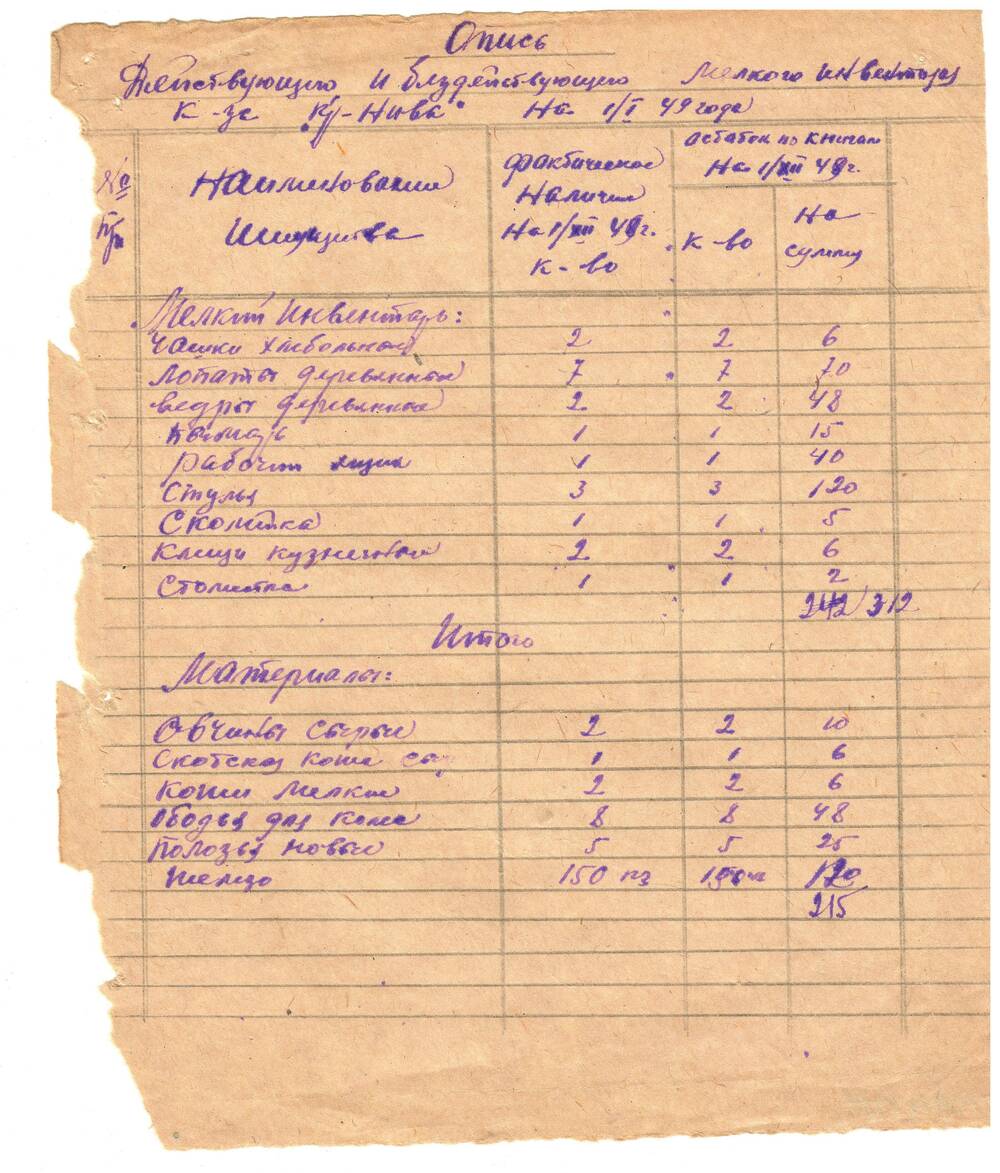 Опись
Действующего и бездействующего мелкого инвентаря
К-за "Кр-Нива" на 1/I 49 года
№ п/п
Наименование имущества
фактическое наличие на 1/XII 48 г. К-во
астаток по книгам на 1/XII 48 г.
К-во
На сумму
Мелкий инвентарь:
чашки 2 2 6
Лопаты деревянные 7 7 70
ведры деревянные 2 2 48
1 1 15
Рабочий ящик 1 1 40
Стулья 3 3 120
1 1 5
Клещи кузнечовые 2 2 6
1 1 2
242 312
Итого
Материалы:
Овчины сырые 2 2 10
Скотская кожа 1 1 6
Кожи мелкие 2 2 6
Ободья для 8 8 48
Полозья новые 5 5 25
Железо 150 кг 150 кг 120
215